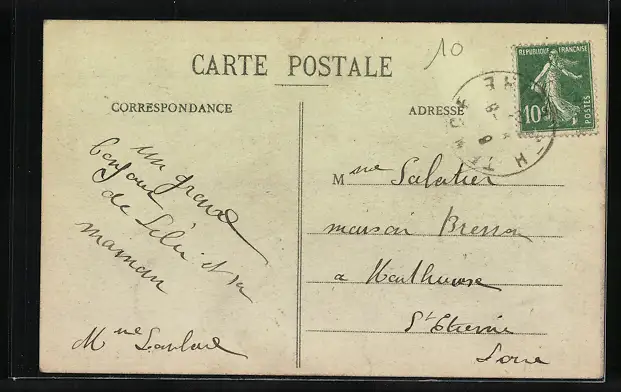 CARTE POSTALE
10
CORRESPONDANCE
ADRESSE
REPUBLIQUE FRANÇAISE
10c
POSTES
un grand
bonjour
de Lili et sa
maman
Mme
Mme Sabatier
maison Bresson
a Monthieux
St Etienne
Loire